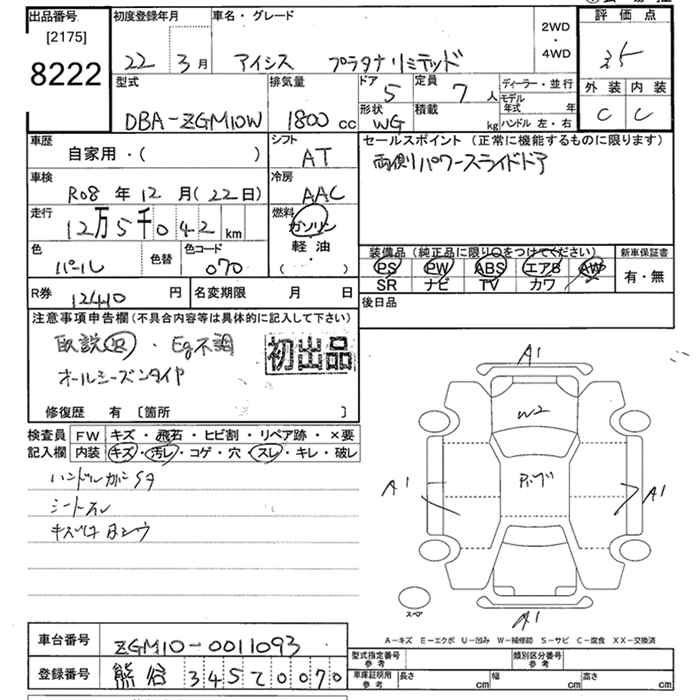 出品番号
[2175]
8222
初度登録年月
22 年 3 月
車名・グレード
アイシス プラタナリミテッド
2WD
・
4WD
評価点
3.5
外装 内装
C C
型式
DBA-ZGM10W
排気量
1800 cc
ドア
5
定員
7 人
形状
WG
積載
kg
ディーラー・並行
モデル年式 年
ハンドル 左・右
車歴
自家用・( )
シフト
AT
セールスポイント (正常に機能するものに限ります)
両側パワースライドドア
車検
R08 年 12 月 (22日)
冷房
AAC
走行
12万5千042 km
燃料
ガソリン
軽油
( ・ )
色
パール
色替
色コード
070
装備品 (純正品に限り○をつけてください)
PS PW ABS エアB AW
SR ナビ TV カワ
新車保証書
有・無
R券
12410 円
名変期限 月 日
後日品
注意事項申告欄 (不具合内容等は具体的に記入して下さい)
取説 ・ Eg不調
オールシーズンタイヤ
初出品
修復歴 有 [箇所 ]
検査員
記入欄
FW キズ・飛石・ヒビ割・リペア跡・×要
内装 キズ・汚レ・コゲ・穴・スレ・キレ・破レ
ハンドルカバーSタ
シートスレ
A1
W2
A1
A1
A1
スペア
A-キズ E-エクボ U-凹み W-補修跡 S-サビ C-腐食 XX-交換済
車台番号
ZGM10-0011093
登録番号
熊谷 345 て 0070
型式指定番号
参考
類別区分番号
参考
車庫証明用
参考
長さ cm 幅 cm 高さ cm